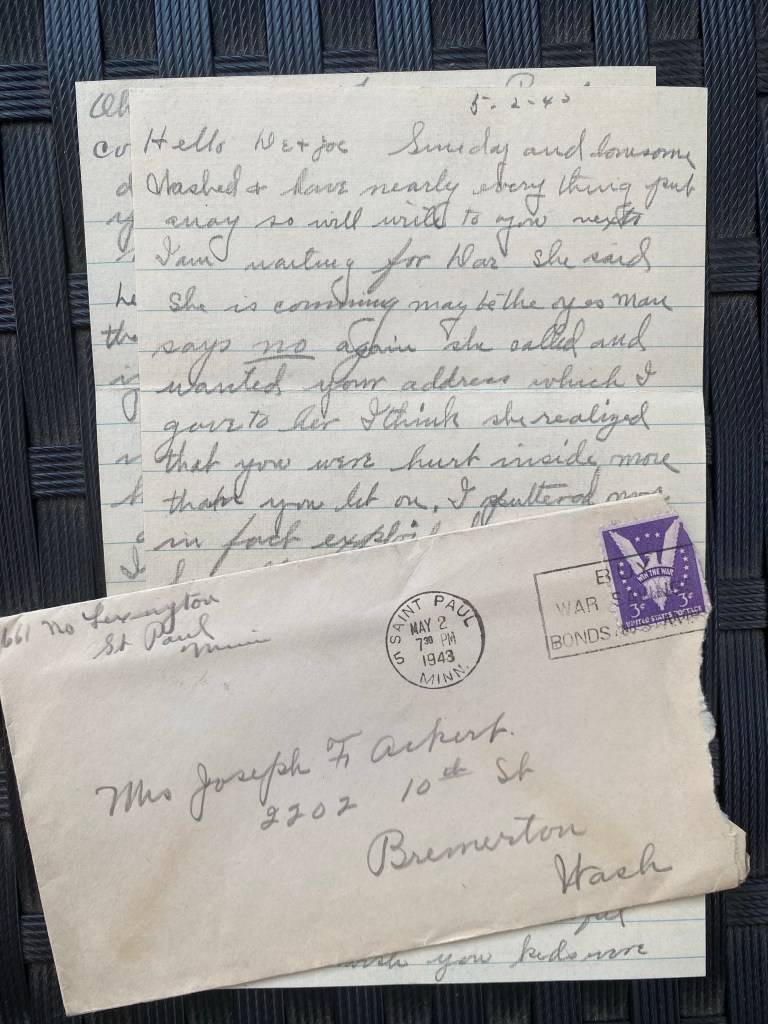 5-2-43
Hello De + Joe Sunday and lonesome
Washed + have nearly every thing put
away so will write to you
I am waiting for she said
she is comming maybe the yes man
says no again she called and
wanted your address which I
gave to her I think she realized
that you were hurt inside more
than you let on, I sputtered
in fact
661 No Lexington
St Paul
Minn
SAINT PAUL
MAY 2
7 30 PM
1943
MINN.
5
BUY
WAR SAVINGS
BONDS AND STAMPS
WIN THE WAR
3¢ 3¢
UNITED STATES POSTAGE
Mrs Joseph F Ackert.
2202 10th St
Bremerton
Wash
wish you kids were